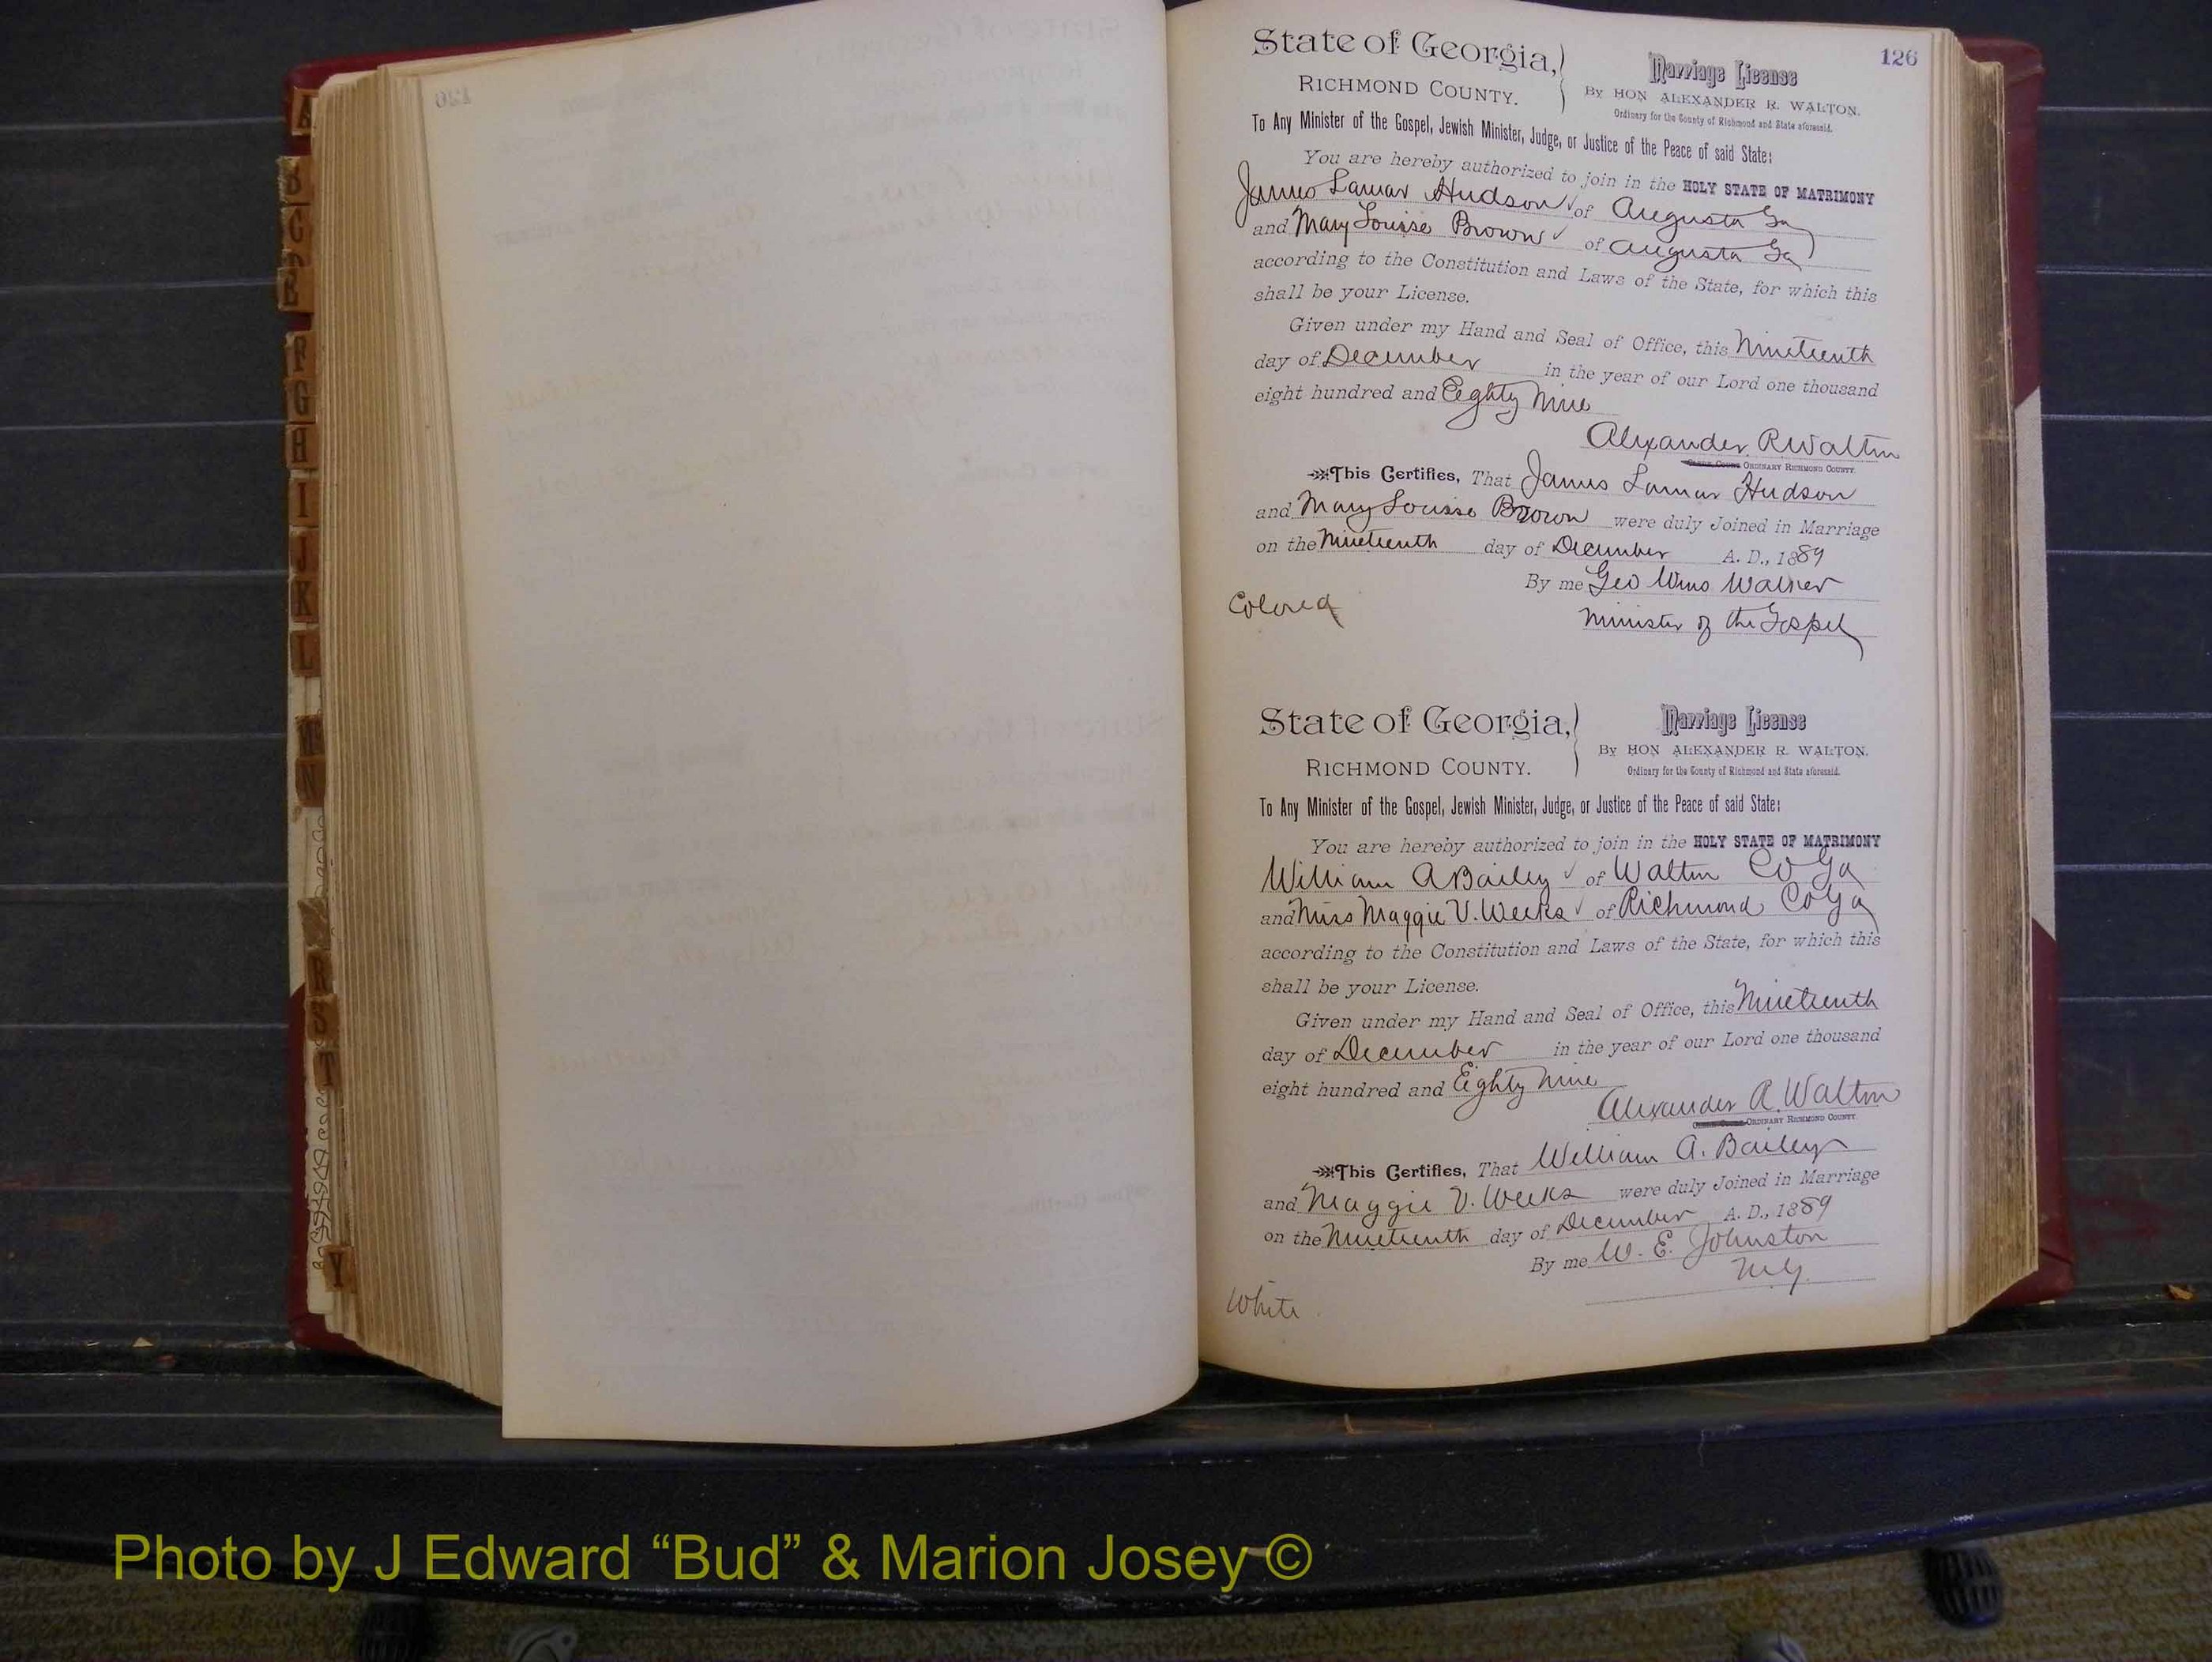 126
State of Georgia,
RICHMOND COUNTY.
Marriage License
By HON ALEXANDER R. WALTON.
Ordinary for the County of Richmond and State aforesaid.
To Any Minister of the Gospel, Jewish Minister, Judge, or Justice of the Peace of said State:
You are hereby authorized to join in the HOLY STATE OF MATRIMONY
James Lamar Hudson of Augusta Ga
and Mary Louise Brown of Augusta Ga
according to the Constitution and Laws of the State, for which this
shall be your License.
Given under my Hand and Seal of Office, this Nineteenth
day of December in the year of our Lord one thousand
eight hundred and Eighty Nine
Alexander R Walton
ORDINARY RICHMOND COUNTY.
This Certifies, That James Lamar Hudson
and Mary Louise Brown were duly Joined in Marriage
on the Nineteenth day of December A. D., 1889
By me Geo Wms Walker
Colored
Minister of the Gospel
State of Georgia,
RICHMOND COUNTY.
Marriage License
By HON ALEXANDER R. WALTON.
Ordinary for the County of Richmond and State aforesaid.
To Any Minister of the Gospel, Jewish Minister, Judge, or Justice of the Peace of said State:
You are hereby authorized to join in the HOLY STATE OF MATRIMONY
William A Bailey of Walton Co Ga
and Miss Maggie V. Weeks of Richmond Co Ga
according to the Constitution and Laws of the State, for which this
shall be your License.
Given under my Hand and Seal of Office, this Nineteenth
day of December in the year of our Lord one thousand
eight hundred and Eighty Nine
Alexander R. Walton
ORDINARY RICHMOND COUNTY.
This Certifies, That William A. Bailey
and Maggie V. Weeks were duly Joined in Marriage
on the Nineteenth day of December A. D., 1889
By me W. E. Johnston
M.G.
White
A
B
C
E
F
G
H
I
J
K
L
M
N
R
S
T
Y
Photo by J Edward “Bud” & Marion Josey ©